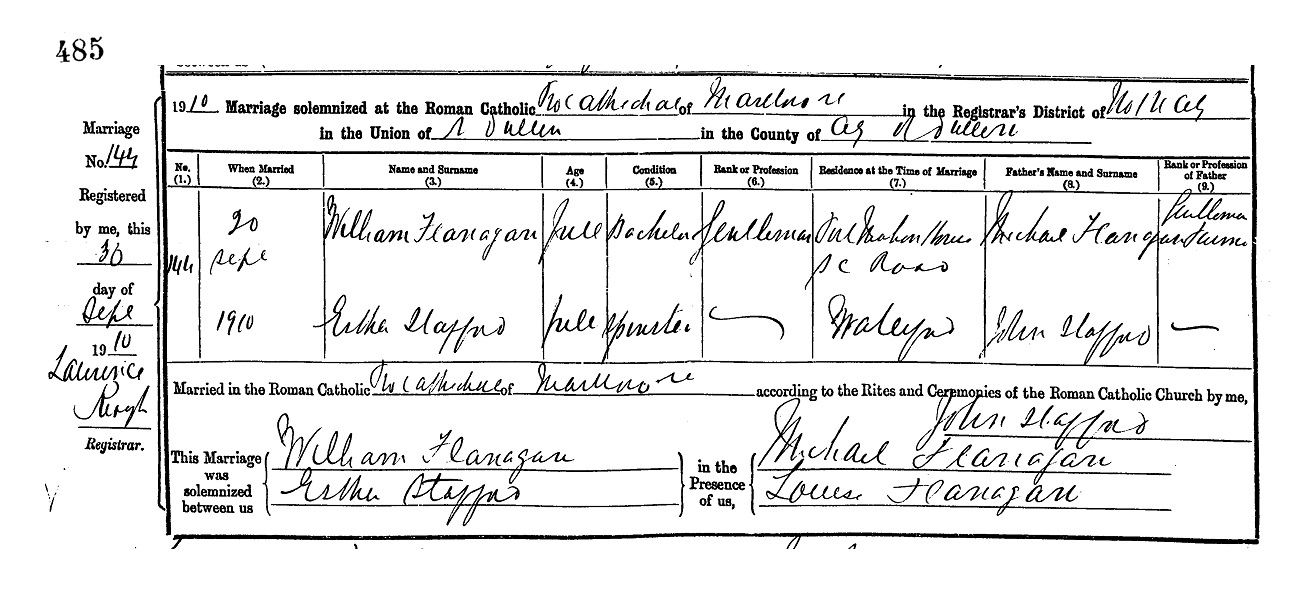 485
1910 Marriage solemnized at the Roman Catholic Pro Cathedral of Marlboro St in the Registrar's District of No 1 N City
in the Union of N Dublin in the County of City of Dublin
Marriage
No. 144
Registered
by me, this
30
day of
Sept
1910
Laurence
Keogh
Registrar.
No. (1.) When Married (2.) Name and Surname (3.) Age (4.) Condition (5.) Rank or Profession (6.) Residence at the Time of Marriage (7.) Father's Name and Surname (8.) Rank or Profession of Father (9.)
144 20 Sept William Flanagan full Bachelor Gentleman Portmahon House SC Road Michael Flanagan Gentleman Farmer
1910 Esther Stafford full Spinster Waterford John Stafford
Married in the Roman Catholic Pro Cathedral of Marlboro St according to the Rites and Ceremonies of the Roman Catholic Church by me,
John Stafford
This Marriage was solemnized between us
William Flanagan
Esther Stafford
in the Presence of us,
Michael Flanagan
Louise Flanagan